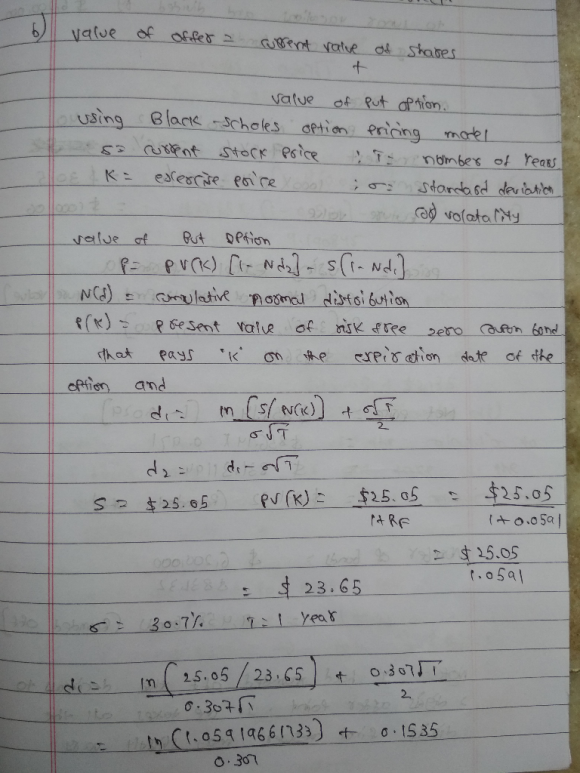 b) value of offer = current value of shares
+
value of put option.
using Black-scholes option pricing model
S = current stock price ; T = number of Years
K = exercise price ; σ = standard deviation
(or) volatality
value of put option
P = PV(K) [1-Nd2] - S[1-Nd1]
N(d) = cumulative normal distribution
P(K) = present value of risk free zero coupon bond
that pays 'K' on the expiration date of the
option and
d1 = ln [S/PV(K)] + σ√T
σ√T 2
d2 = d1 - σ√T
S = $25.05 PV(K) = $25.05 = $25.05
1+RF 1+0.0591
= $25.05
1.0591
= $ 23.65
σ = 30.7% T = 1 year
d1 = ln (25.05/23.65) + 0.307√1
0.307√1 2
= ln (1.05919661733) + 0.1535
0.307